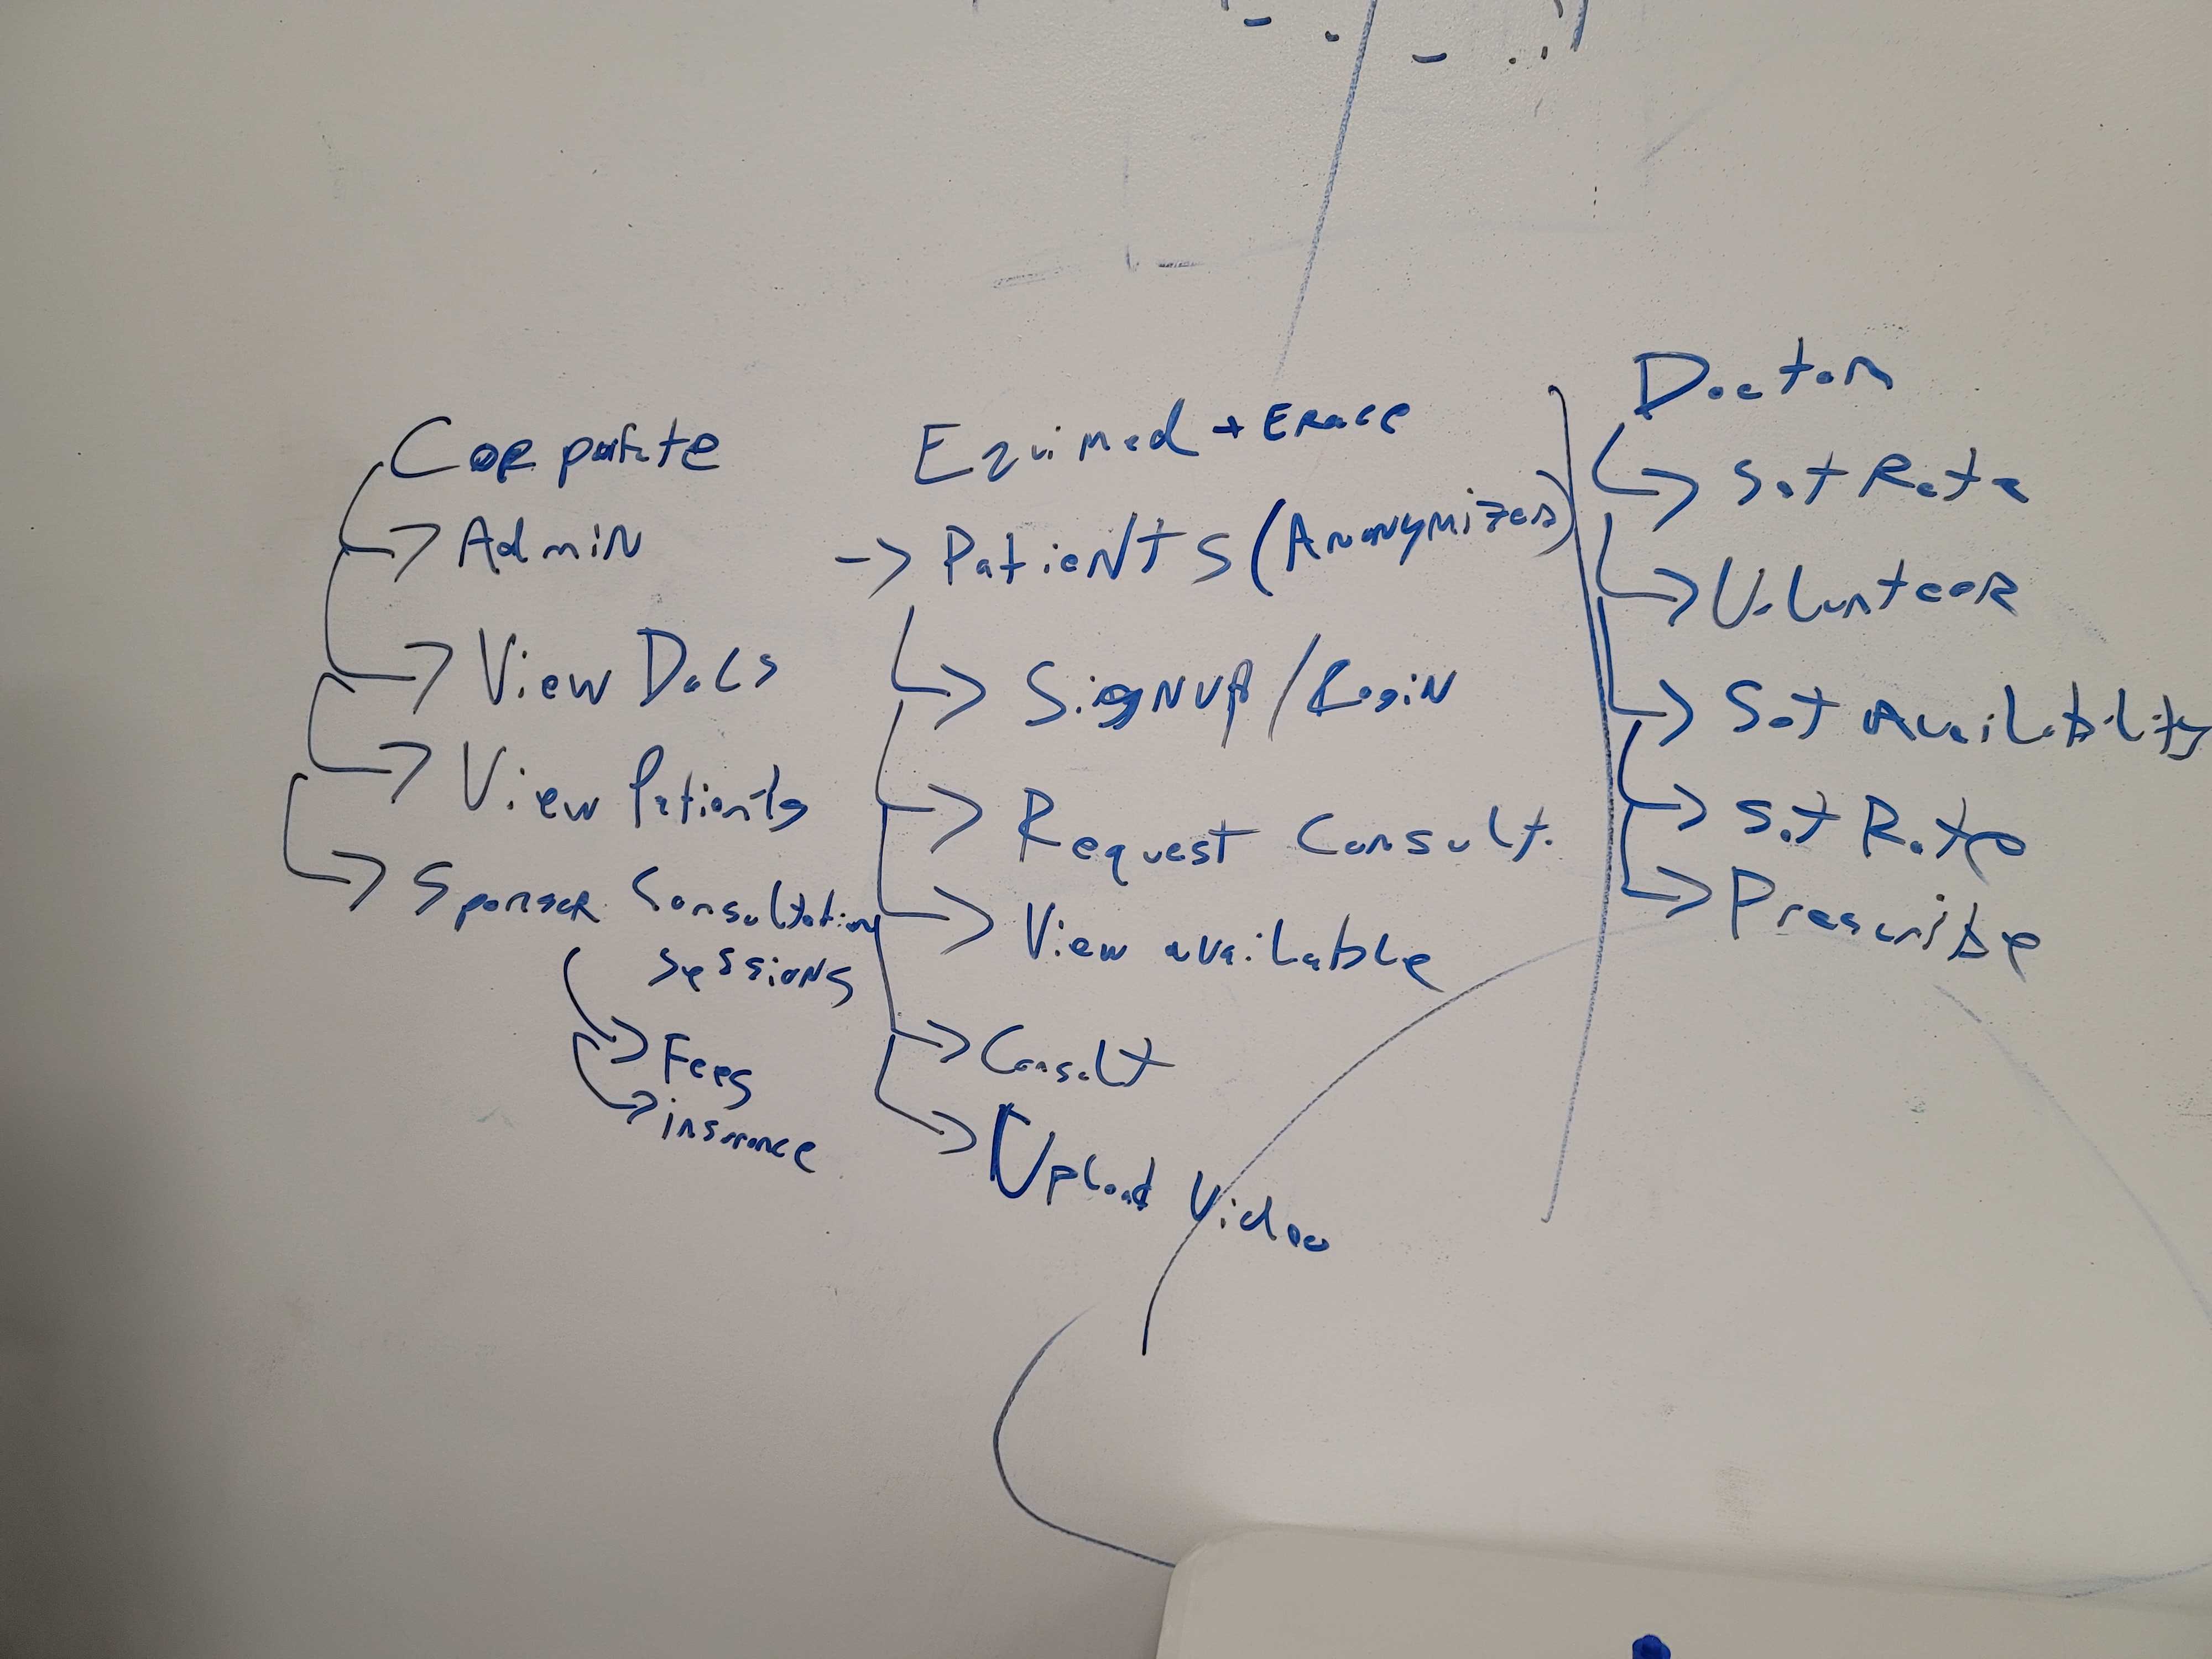 Corporate
→ Admin
→ View Docs
→ View Patients
→ Sponsor Consultation
sessions
→ Fees
→ insurance
Equimed + Erase
→ Patients (Anonymized)
→ Signup/Login
→ Request Consult.
→ View available
→ Consult
→ Upload Video
Doctor
→ Set Rate
→ Volunteer
→ Set Availability
→ Set Rate
→ Prescribe